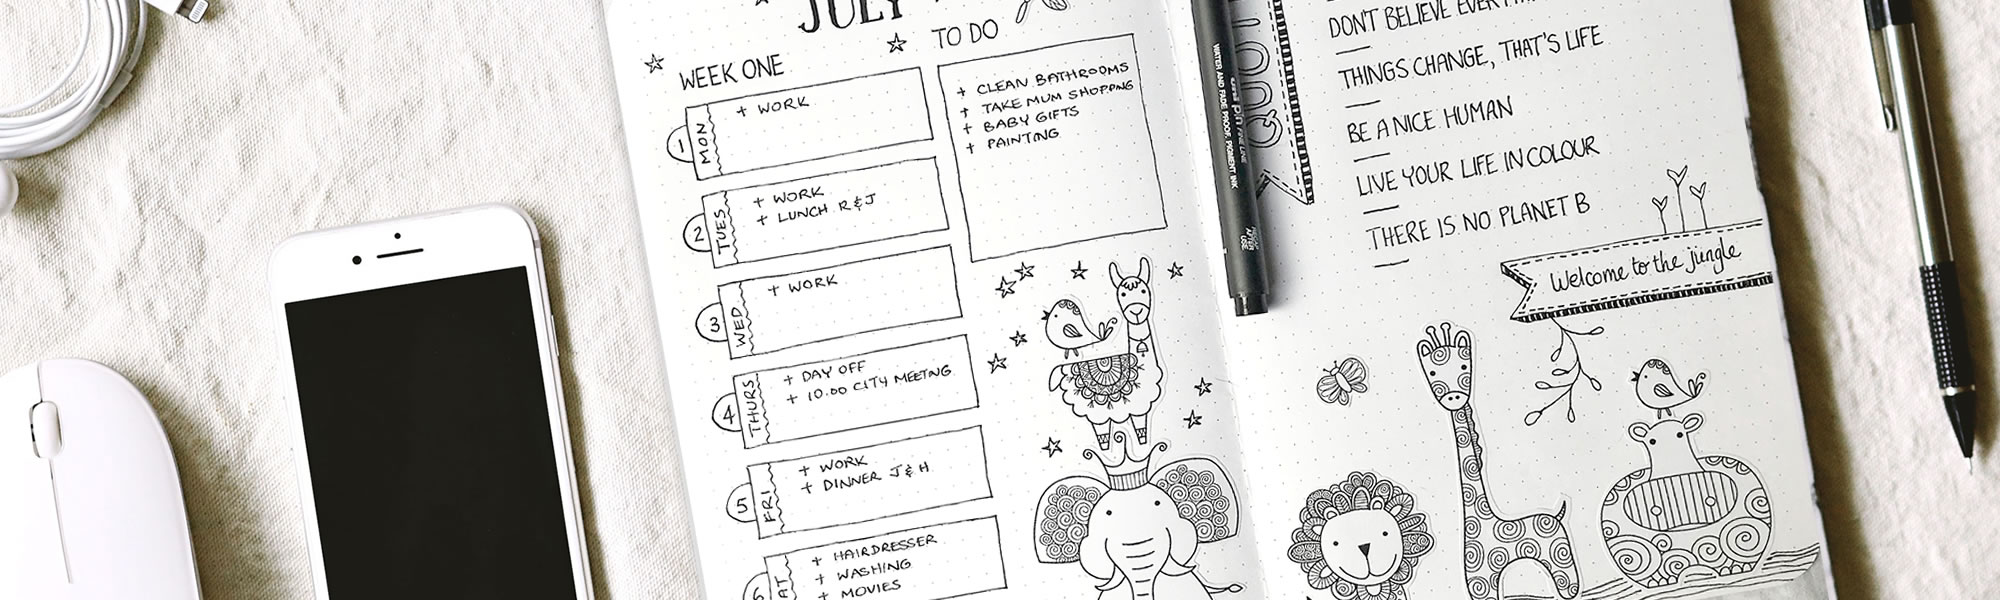 JULY
WEEK ONE
1 MON
+ WORK
2 TUES
+ WORK
+ LUNCH R & J
3 WED
+ WORK
4 THURS
+ DAY OFF
+ 10.00 CITY MEETNG
5 FRI
+ WORK
+ DINNER J & H
6
+ HAIRDRESSER
+ WASHING
+ MOVIES
TO DO
+ CLEAN BATHROOMS
+ TAKE MUM SHOPPNG
+ BABY GIFTS
+ PAINTING
uni PIN FINE LINE
WATER AND FADE PROOF, PIGMENT INK
DON'T BELIEVE
THINGS CHANGE, THAT'S LIFE
BE A NICE HUMAN
LIVE YOUR LIFE IN COLOUR
THERE IS NO PLANET B
Welcome to the jungle